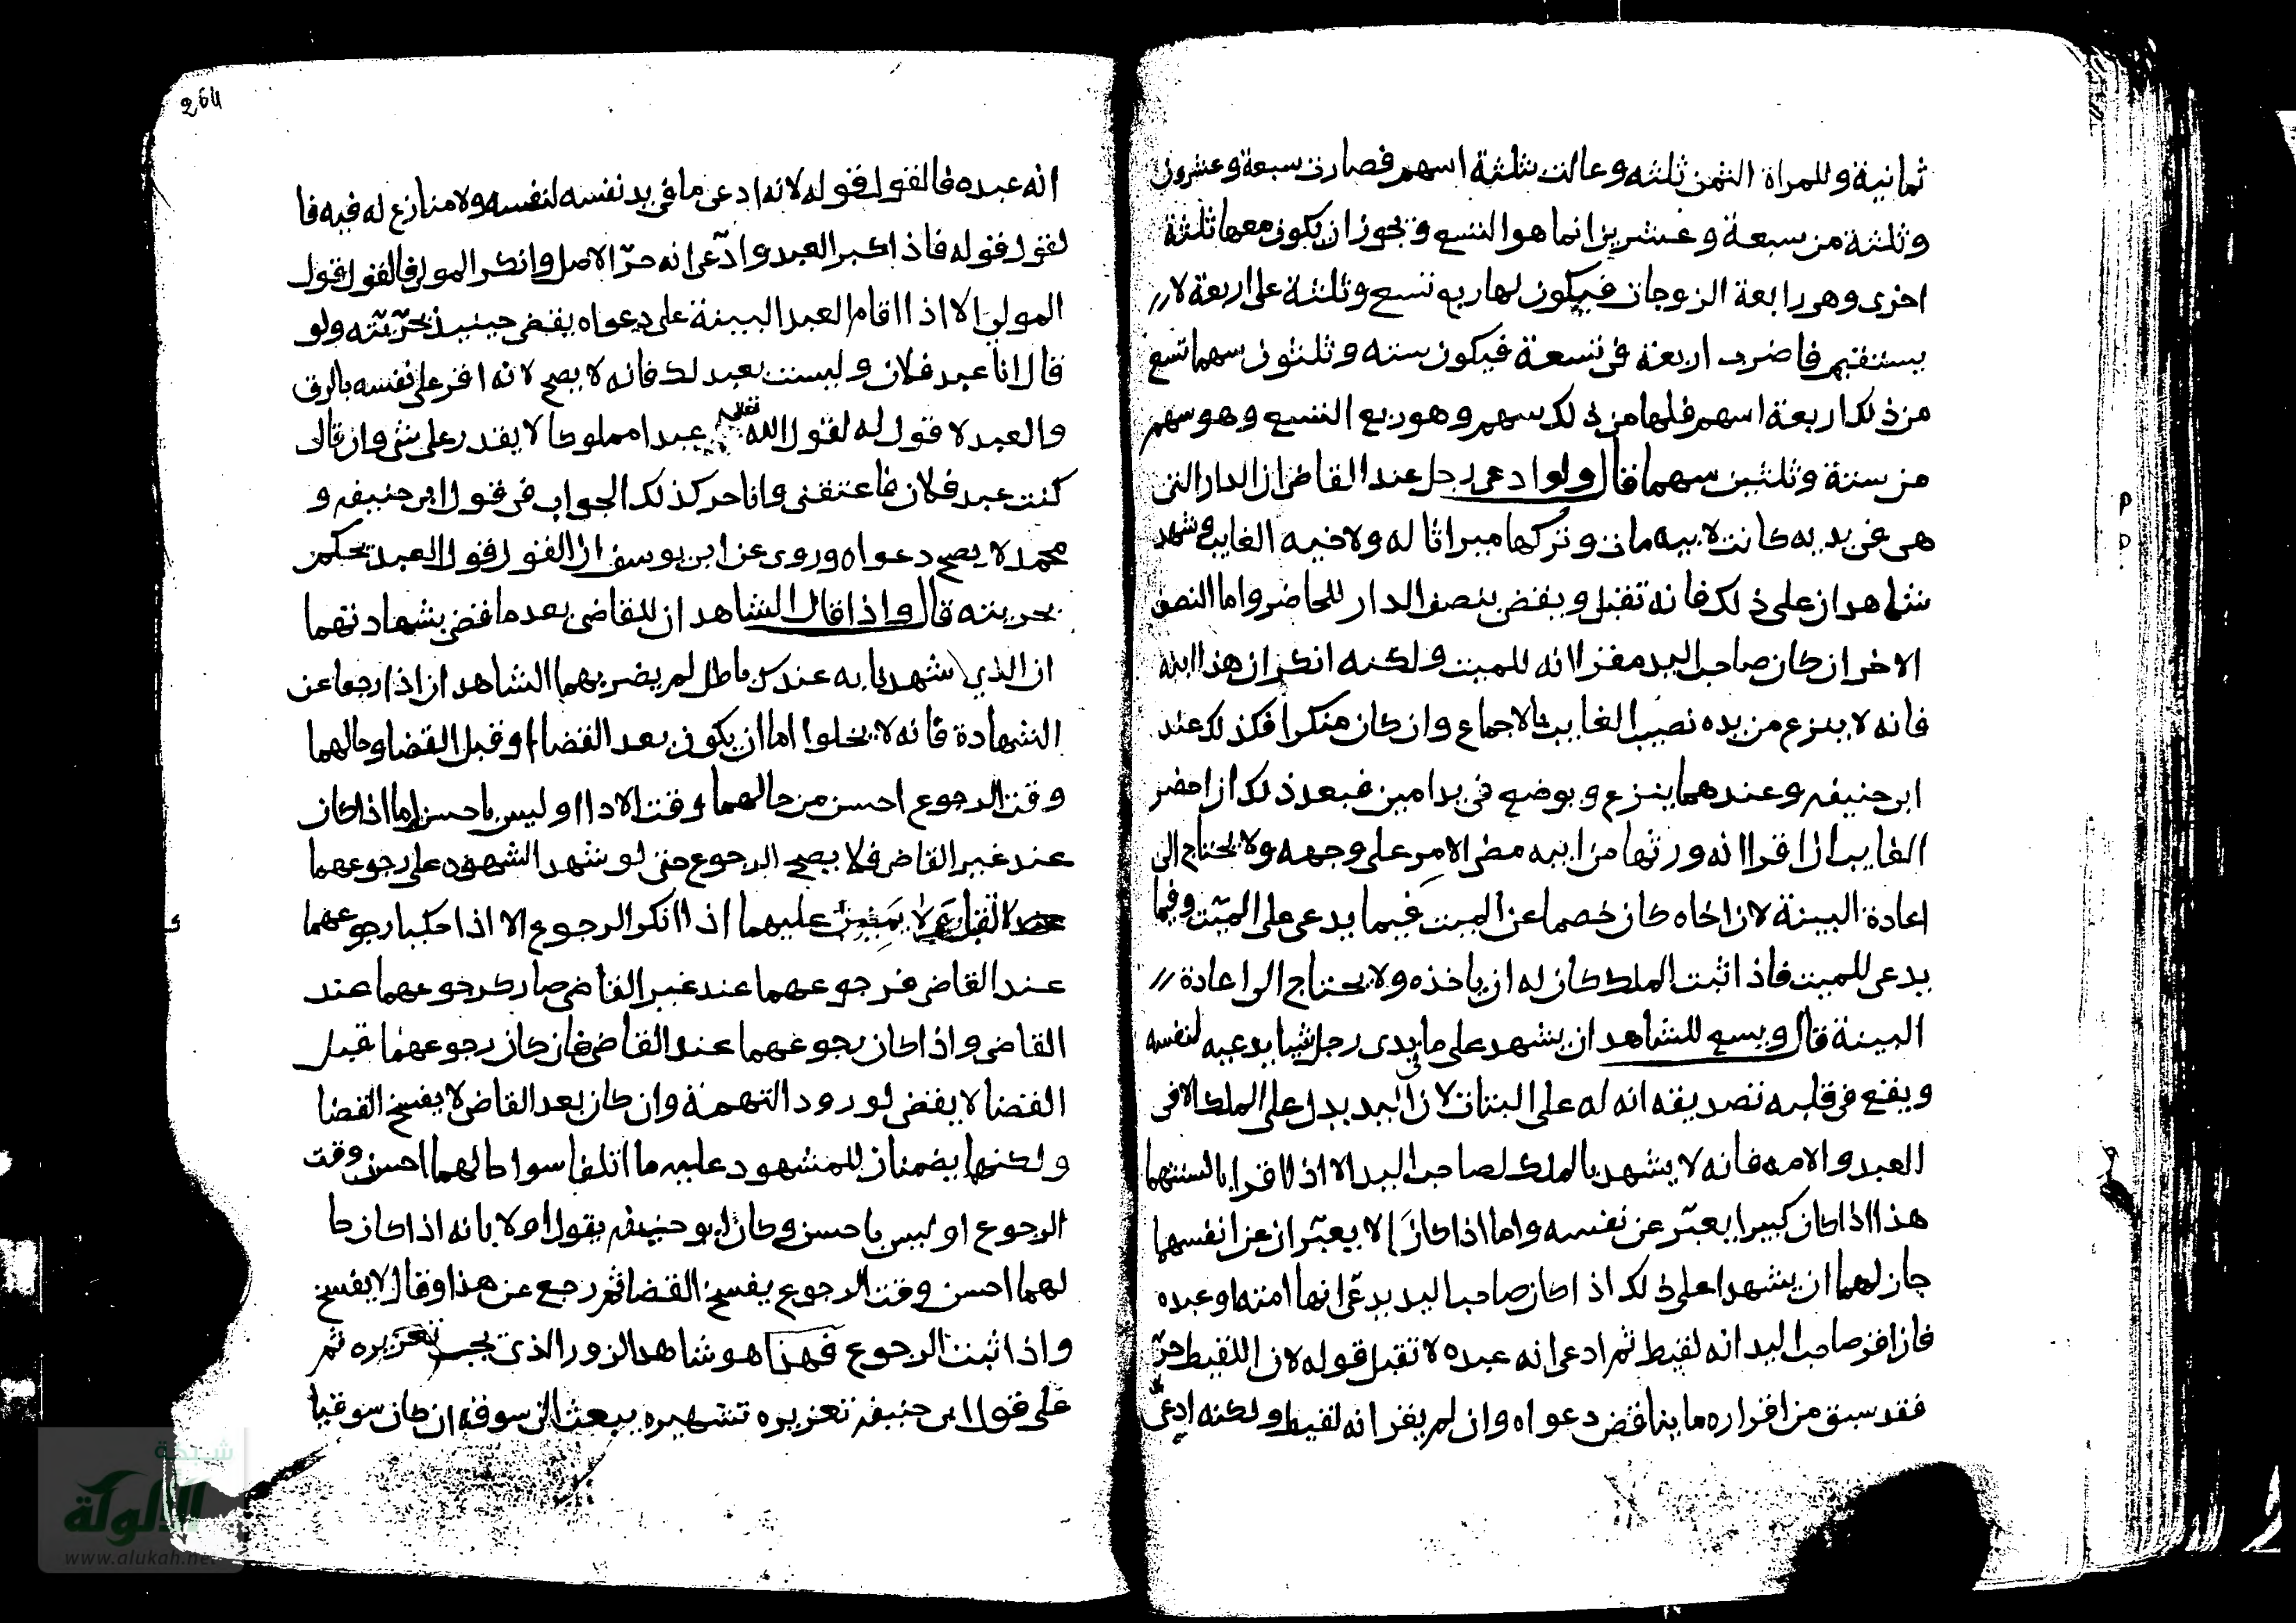 ثمانية وللمراة الثمن ثلثه وعالت بثلثة اسهم فصارت سبعة وعشرون
وثلثة من سبعة وعشرين انما هو التسع ويجوز ان يكون معها ثلثة
اخرى وهى رابعة الزوجات فيكون لها ربع تسع وثلثة على اربعة لا
يستقيم فاضرب اربعة فى تسعة فيكون ستة وثلثون سهما تسع
من ذلك اربعة اسهم فلها من ذلك سهم وهو ربع التسع وهو سهم
من ستة وثلثين سهما قال ولو ادعى رجل عند القاضى ان الدار التى
هى فى يديه كانت لابيه مات وتركها ميراثا له ولاخيه الغايب وشهد
شاهدان على ذلك فانه تقبل ويقضى بنصف الدار للحاضر واما النصف
الاخر ان كان صاحب اليد مقرا انه للميت ولكنه انكر ان هذا ابنه
فانه لا ينزع من يده نصيب الغايب بالاجماع وان كان منكرا فكذلك عند
ابى حنيفه وعندهما ينزع ويوضع فى يد امين فبعد ذلك ان احضر
الغايب ان اقرا انه ورثها من ابيه مضى الامر على وجهه ولا يحتاج الى
اعادة البينة لان اخاه كان خصما عن الميت فيما يدعى على الميّت وفيما
يدعى للميت فاذا ثبت الملك كان له ان ياخذه ولا يحتاج الى اعادة
البينة قال ويسع للشاهد ان يشهد على ما فى يدى رجل شيا يدعيه لنفسه
ويقع فى قلبه تصديقه انه له على البتات لان اليد يدل على الملك الا فى
العبد والامه فانه لا يشهد بالملك لصاحب اليد الا اذا اقرا بالسنتهما
هذا اذا كان كبيرا يعبّر عن نفسه واما اذا كانا لا يعبّران عن انفسهما
جاز لهما ان يشهدا على ذلك اذا كان صاحب اليد يدعّى انها امته او عبده
فان اقر صاحب اليد انه لقيط ثم ادعى انه عبده لا تقبل قوله لان اللقيط حرّ
فقد سبق من اقراره ما يناقض دعواه وان لم يقر انه لقيط ولكنه ادعى
264
انه عبده فالقول قوله لانه ادعى ما فى يد نفسه لنفسه ولا منازع له فيه فا
لقول قوله فاذا كبر العبد وادّعى انه حرّ الاصل وانكر المولى فالقول قول
المولى الا اذا اقام العبد البينة على دعواه يقضى حينيذ بحرّيّته ولو
قال انا عبد فلان وليست بعبد لك فانه لا يصح لانه اقر على نفسه بالرق
والعبد لا قول له لقول الله تعالى عبدا مملوكا لا يقدر على شى وان قال
كنت عبد فلان فاعتقنى وانا حر كذلك الجواب فى قول ابى حنيفه و
محمد لا يصح دعواه وروى عن ابى يوسف ان القول قول العبد يحكم
بحريته قال واذا قال الشاهدان للقاضى بعد ما قضى بشهادتهما
ان الذي شهدنا به عندك باطل لم يضربهما الشاهدان اذا رجعا عن
الشهادة فانه لا يخلوا اما ان يكون بعد القضا او قبل القضا وحالهما
وقت الرجوع احسن من حالهما وقت الادا او ليس باحسن اما اذا كان
عند غير القاضى فلا يصح الرجوع حتى لو شهد الشهود على رجوعهما
لا تقبل ولا يمين عليهما اذا انكر الرجوع الا اذا حكيا رجوعهما
عند القاضى فرجوعهما عند غير القاضى صار كرجوعهما عند
القاضى واذا كان رجوعهما عند القاضى فان كان رجوعهما قبل
القضا لا يقضى لورود التهمة وان كان بعد القاضى لا يفسخ القضا
ولكنهما يضمنان للمشهود عليه ما اتلفا سوا حالهما احسن وقت
الرجوع او ليس باحسن وكان ابو حنيفه يقول اولا بانه اذا كان حا
لهما احسن وقت الرجوع يفسخ القضا ثم رجع عن هذا وقال لا يفسخ
واذا ثبت الرجوع فهذا هو شاهد الزور الذى يجب تعزيره ثم
على قول ابى حنيفه تعزيره تشهيره يبعث الى سوقه ان كان سوقيا
شبكة
الألوكة
www.alukah.net